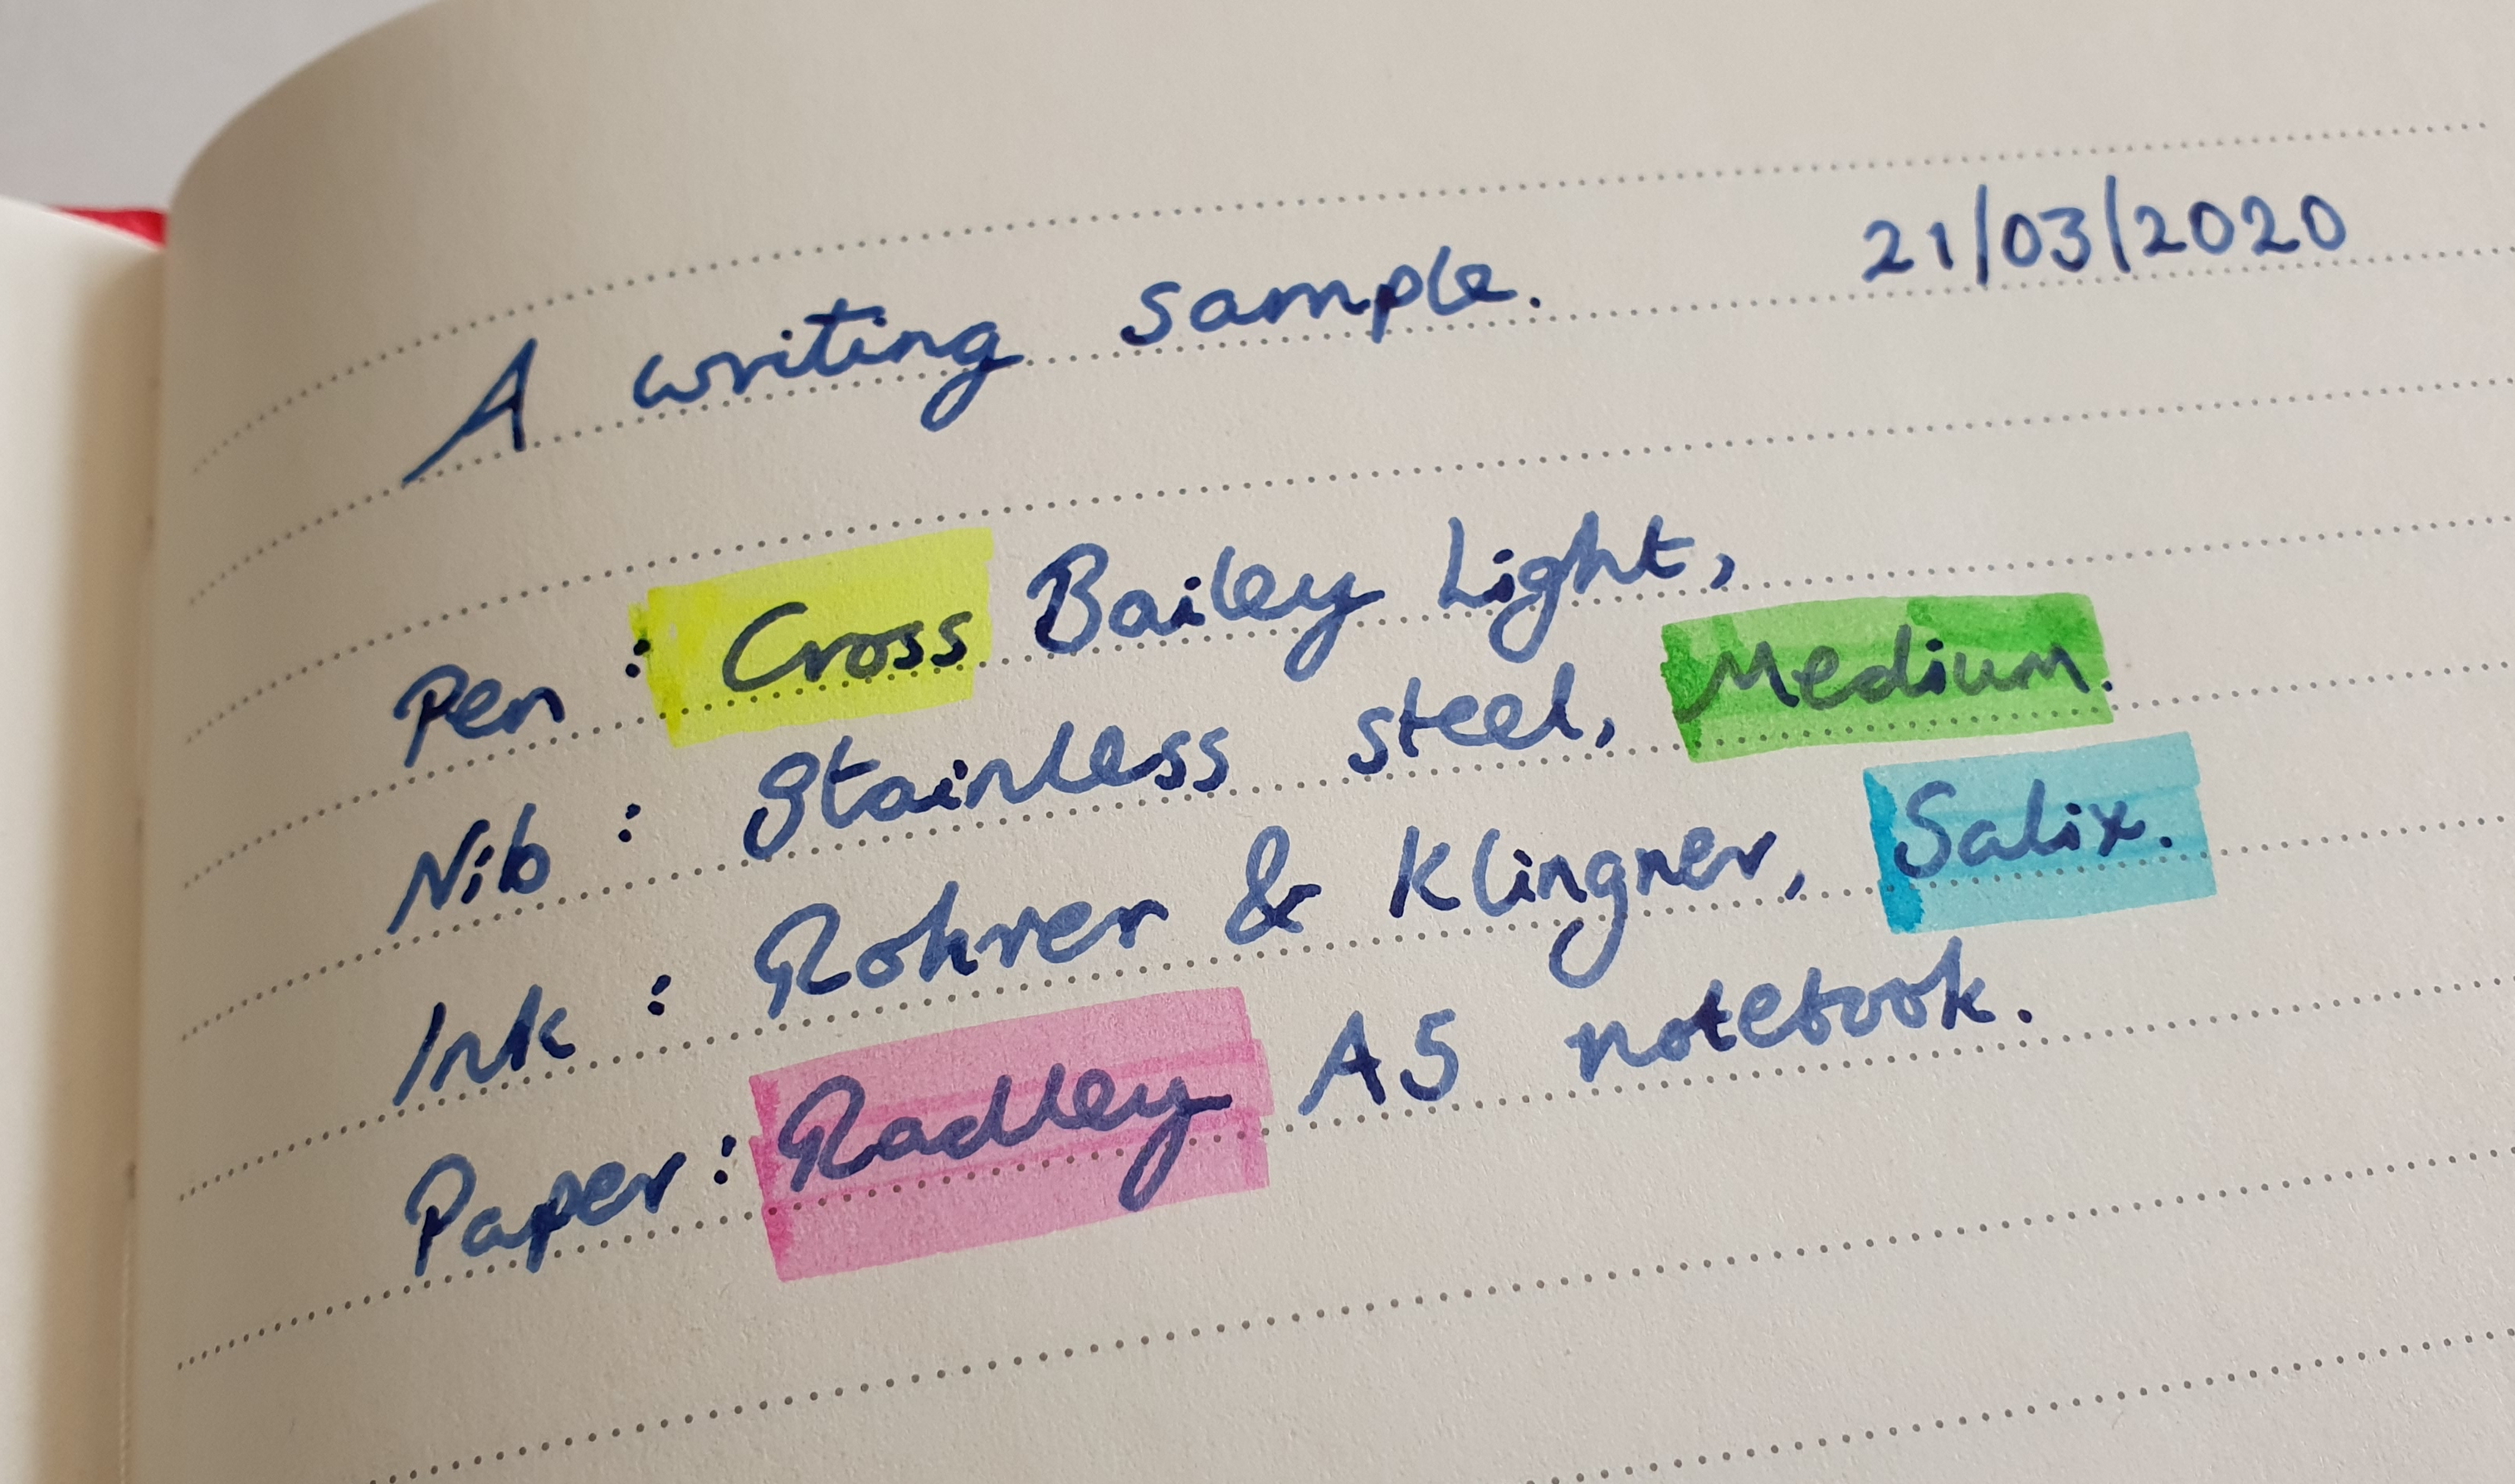 A writing sample. 21/03/2020
Pen : Cross Bailey Light,
Nib : Stainless steel, Medium.
Ink : Rohrer & Klingner, Salix.
Paper : Radley A5 notebook.